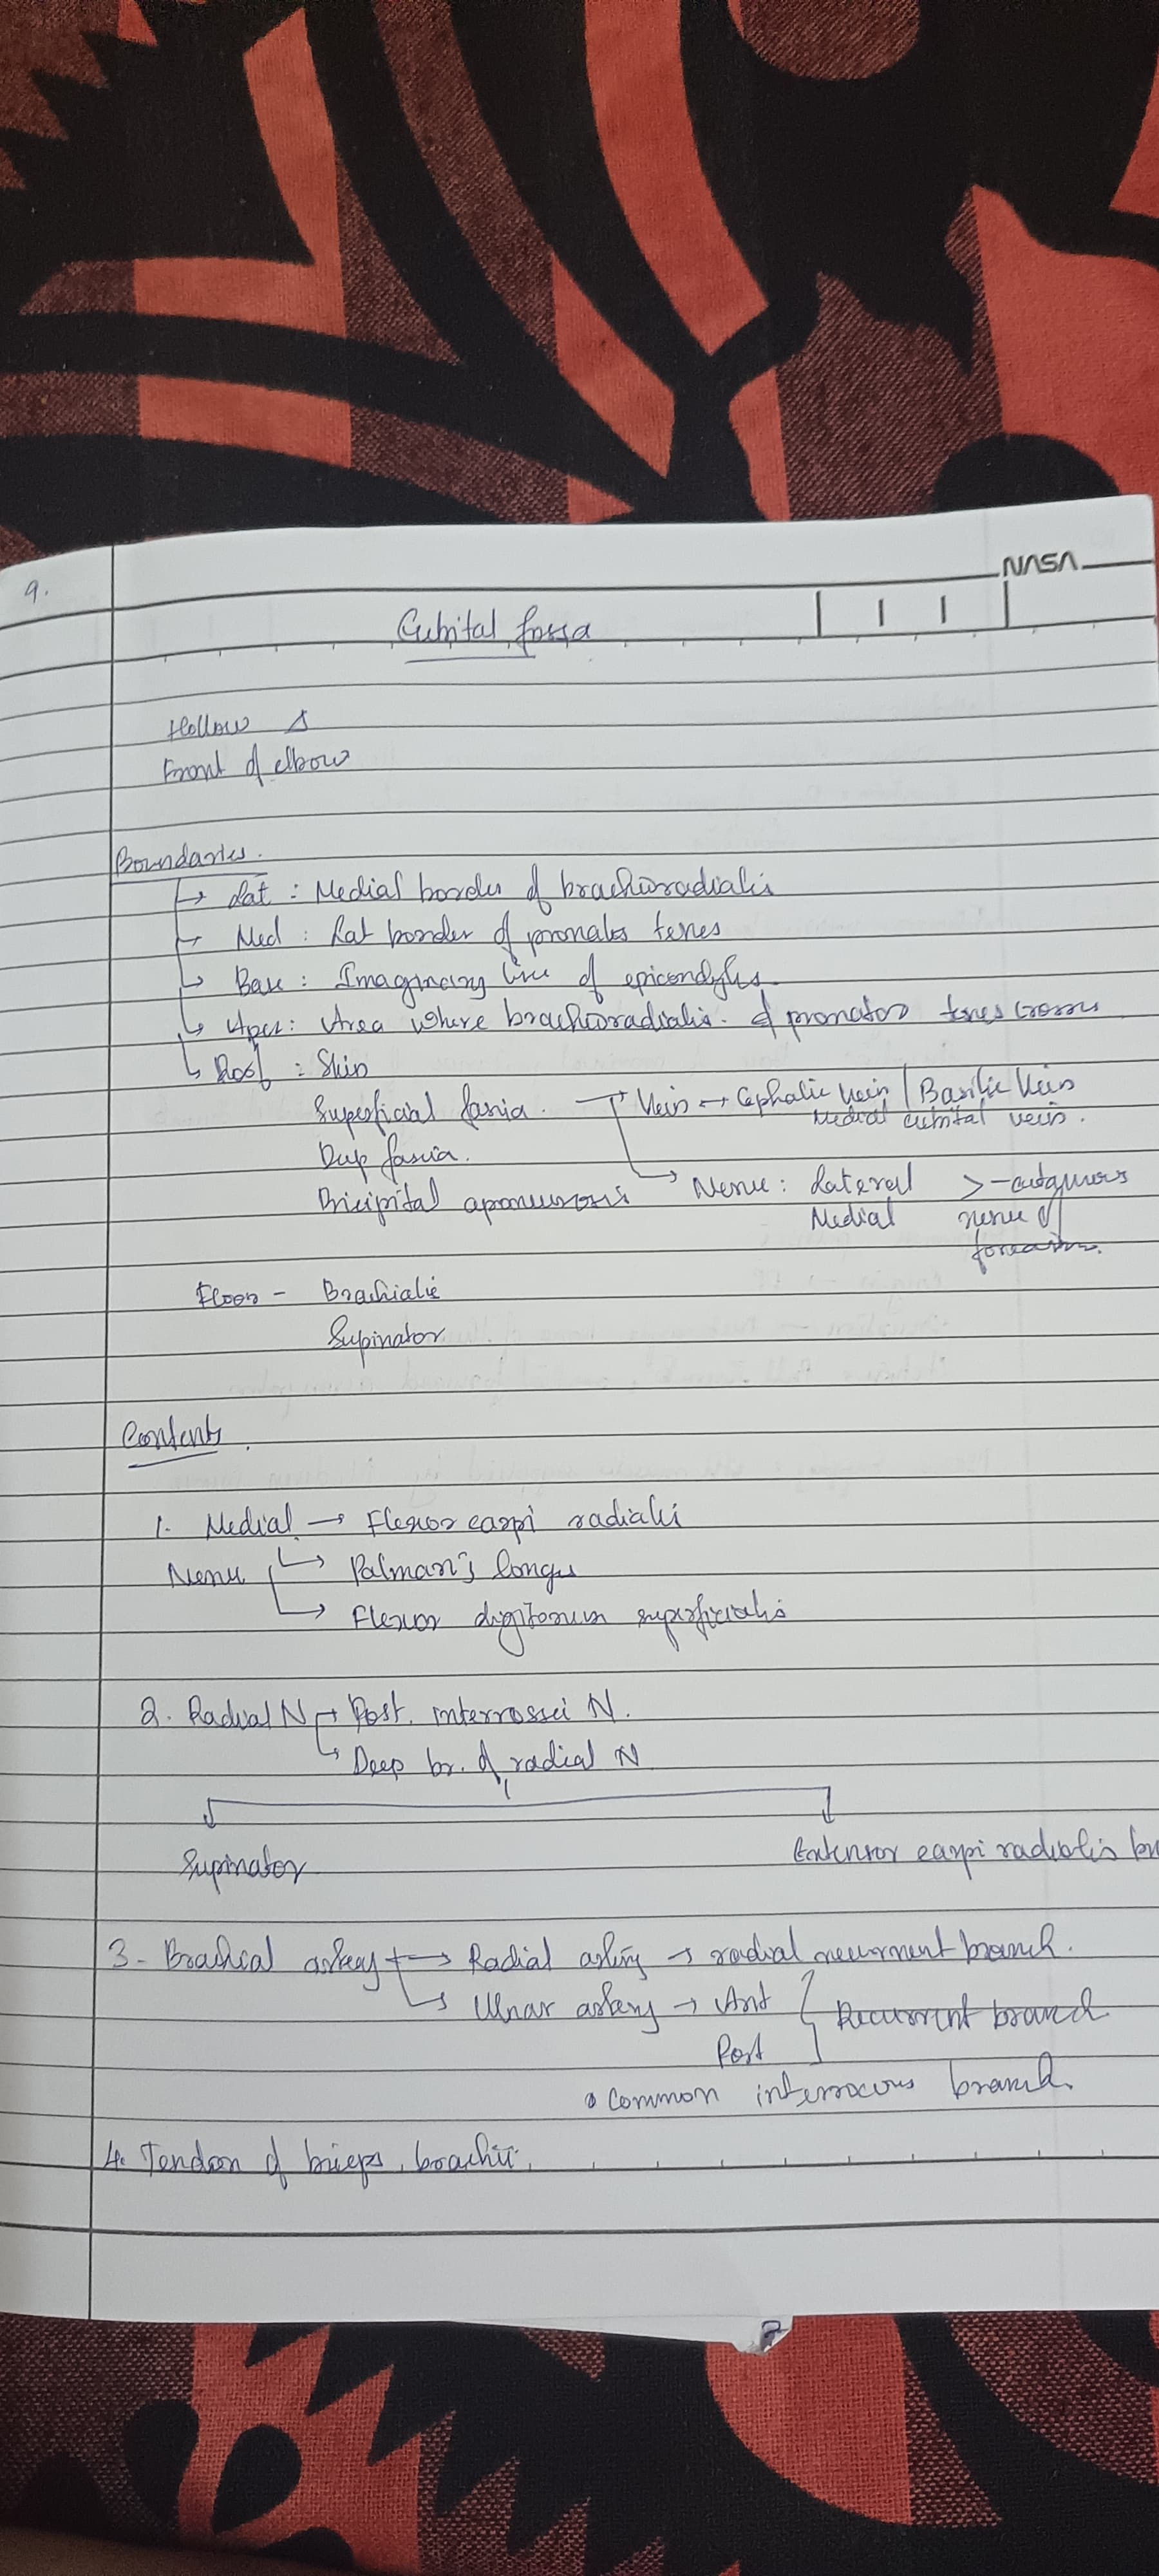 9.
NASA
Cubital fossa
Hollow Δ
Front of elbow
Boundaries.
→ Lat : Medial border of brachioradialis
→ Med : Lat border of pronator teres
→ Base : Imaginary line of epicondyles
→ Apex : Area where brachioradialis & pronator teres cross
→ Roof : Skin
Superficial fascia. → Vein → Cephalic vein / Basilic Vein
Medial cubital vein.
Deep fascia.
Bicipital aponeurosis → Nerve : Lateral > -cutaneous
Medial nerve of
forearm.
Floor - Brachialis
Supinator
Contents
1. Medial → Flexor carpi radialis
Nerve → Palmaris longus
→ Flexor digitorum superficialis
2. Radial N → Post. interrossei N.
→ Deep br. of radial N
Supinator Extensor carpi radialis br
3- Brachial artery → Radial artery → radial recurrent branch.
→ Ulnar artery → Ant } Recurrent branch
Post
• Common interrocous branch.
4. Tendon of biceps brachii.